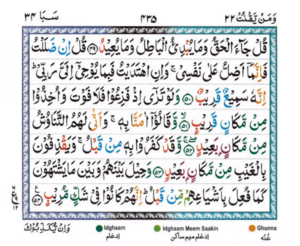 وَمَن يَّقْنُتْ ٢٢ ٤٣٥ سَبَا ٣٤
قُلْ جَآءَ الْحَقُّ وَمَا يُبْدِئُ الْبَاطِلُ وَمَا يُعِيْدُ ﴿٤٩﴾ قُلْ اِنْ ضَلَلْتُ
فَاِنَّمَآ اَضِلُّ عَلٰى نَفْسِىْ ۚ وَاِنِ اهْتَدَيْتُ فَبِمَا يُوْحِىْٓ اِلَىَّ رَبِّىْ ؕ
اِنَّهٗ سَمِيْعٌ قَرِيْبٌ ﴿٥٠﴾ وَلَوْ تَرٰٓى اِذْ فَزِعُوْا فَلَا فَوْتَ وَاُخِذُوْا
مِنْ مَّكَانٍ قَرِيْبٍ ﴿٥١﴾ وَّقَالُوْٓا اٰمَنَّا بِهٖ ۚ وَاَنّٰى لَهُمُ التَّنَاوُشُ
مِنْ مَّكَانٍۢ بَعِيْدٍ ﴿٥٢﴾ وَّقَدْ كَفَرُوْا بِهٖ مِنْ قَبْلُ ۚ وَيَقْذِفُوْنَ
بِالْغَيْبِ مِنْ مَّكَانٍۢ بَعِيْدٍ ﴿٥٣﴾ وَحِيْلَ بَيْنَهُمْ وَبَيْنَ مَا يَشْتَهُوْنَ
كَمَا فُعِلَ بِاَشْيَاعِهِمْ مِّنْ قَبْلُ ؕ اِنَّهُمْ كَانُوْا فِىْ شَكٍّ مُّرِيْبٍ ﴿٥٤﴾
Idghaam Idghaam Meem Saakin Ghunna
ادغام ادغام میم ساکن غنّہ